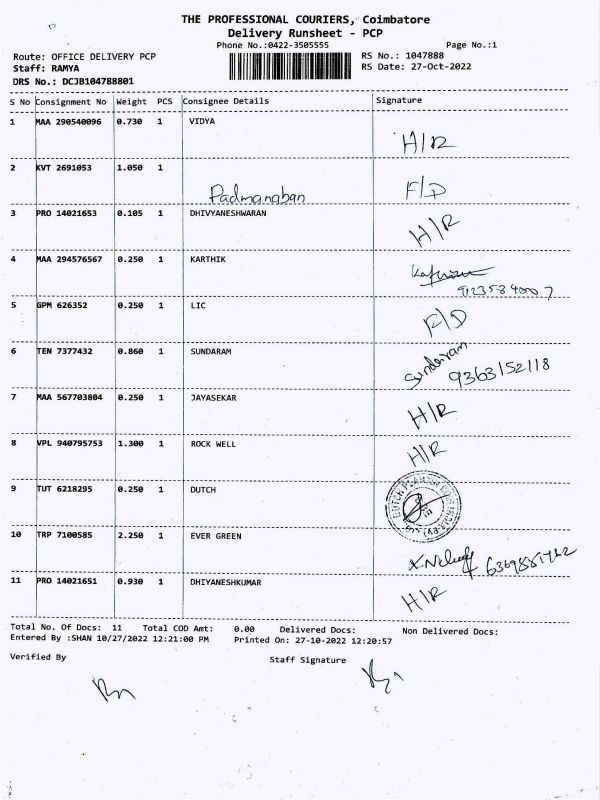 THE PROFESSIONAL COURIERS, Coimbatore
Delivery Runsheet - PCP
Phone No.:0422-3505555 Page No.:1
Route: OFFICE DELIVERY PCP RS No.: 1047888
Staff: RAMYA RS Date: 27-Oct-2022
DRS No.: DCJB104788801
S No Consignment No Weight PCS Consignee Details Signature
1 MAA 290540096 0.730 1 VIDYA H/R
2 KVT 2691053 1.050 1 Padmanaban F/D
3 PRO 14021653 0.105 1 DHIVYANESHWARAN H/R
4 MAA 294576567 0.250 1 KARTHIK
5 GPM 626352 0.250 1 LIC F/D
6 TEN 7377432 0.860 1 SUNDARAM Sundaram 9363152118
7 MAA 567703804 0.250 1 JAYASEKAR H/R
8 VPL 940795753 1.300 1 ROCK WELL H/R
9 TUT 6218295 0.250 1 DUTCH
10 TRP 7100585 2.250 1 EVER GREEN
11 PRO 14021651 0.930 1 DHIYANESHKUMAR H/R
Total No. Of Docs: 11 Total COD Amt: 0.00 Delivered Docs: Non Delivered Docs:
Entered By :SHAN 10/27/2022 12:21:00 PM Printed On: 27-10-2022 12:20:57
Verified By Staff Signature